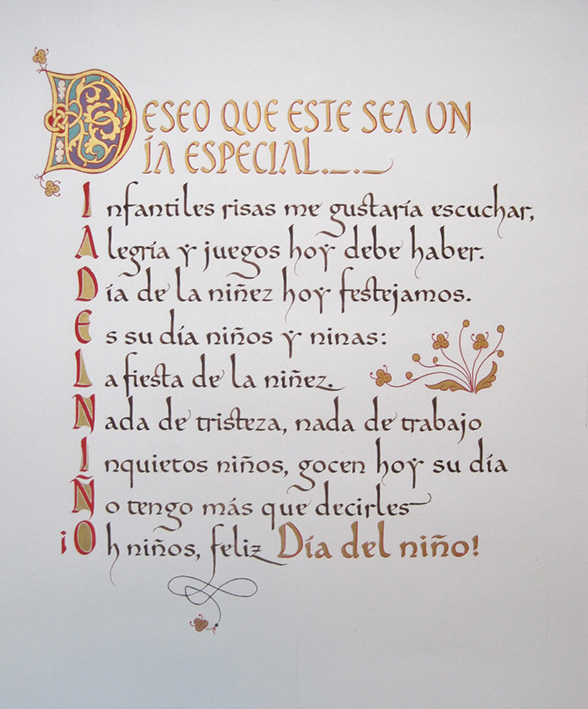 DESEO QUE ESTE SEA UN
ÍA ESPECIAL._._
Infantiles risas me gustaría escuchar,
Alegría y juegos hoy debe haber.
Día de la niñez hoy festejamos.
Es su día niños y ninas:
La fiesta de la niñez.
Nada de tristeza, nada de trabajo
Inquietos niños, gocen hoy su día
Ño tengo más que decirles
¡Oh niños, feliz Día del niño!